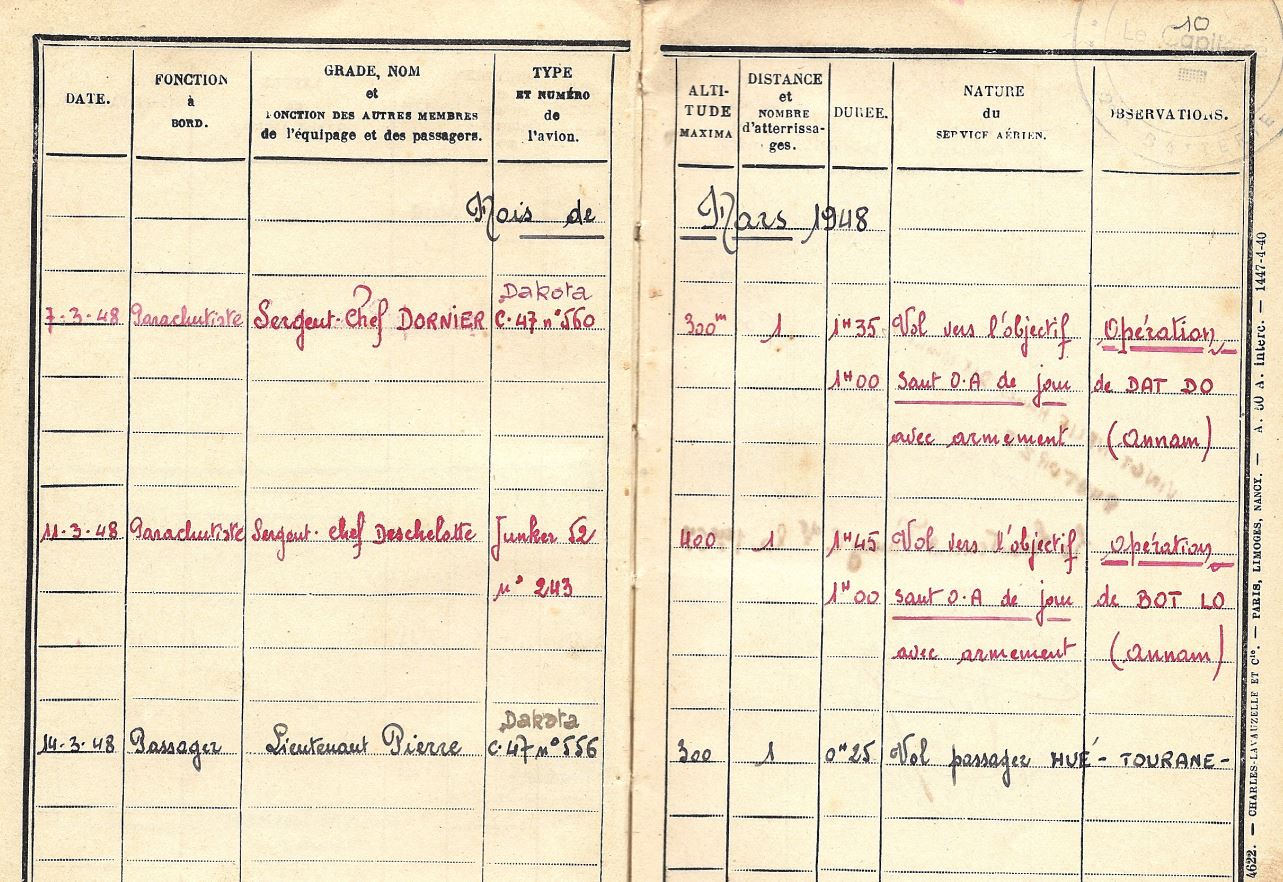 10
Le Capitaine
DATE.
FONCTION
à
BORD.
GRADE, NOM
et
FONCTION DES AUTRES MEMBRES
de l'équipage et des passagers.
TYPE
ET NUMÉRO
de
l'avion.
ALTI-
TUDE
MAXIMA
DISTANCE
et
NOMBRE
d'atterrissa-
ges.
DURÉE.
NATURE
du
SERVICE AÉRIEN.
OBSERVATIONS.
Mois de Mars 1948
Dakota
7-3-48 Parachutiste Sergent-Chef DORNIER C.47 n° 560 300m 1 1H35 Vol vers l'objectif Opération
1H00 Saut O.A de jour de DAT DO
avec armement (Annam)
11-3-48 Parachutiste Sergent-chef Deschelotte Junker 52 400 1 1H45 Vol vers l'objectif Opération
n° 243 1H00 Saut O.A de jour de BOT LO
avec armement (Annam)
Dakota
14-3-48 Passager Lieutenant Pierre C.47 n° 556 300 1 0H25 Vol passager HUÉ - TOURANE -
4622. — CHARLES-LAVAUZELLE ET Cie. — PARIS, LIMOGES, NANCY. — A. 50 A. interc. — 1447-4-40